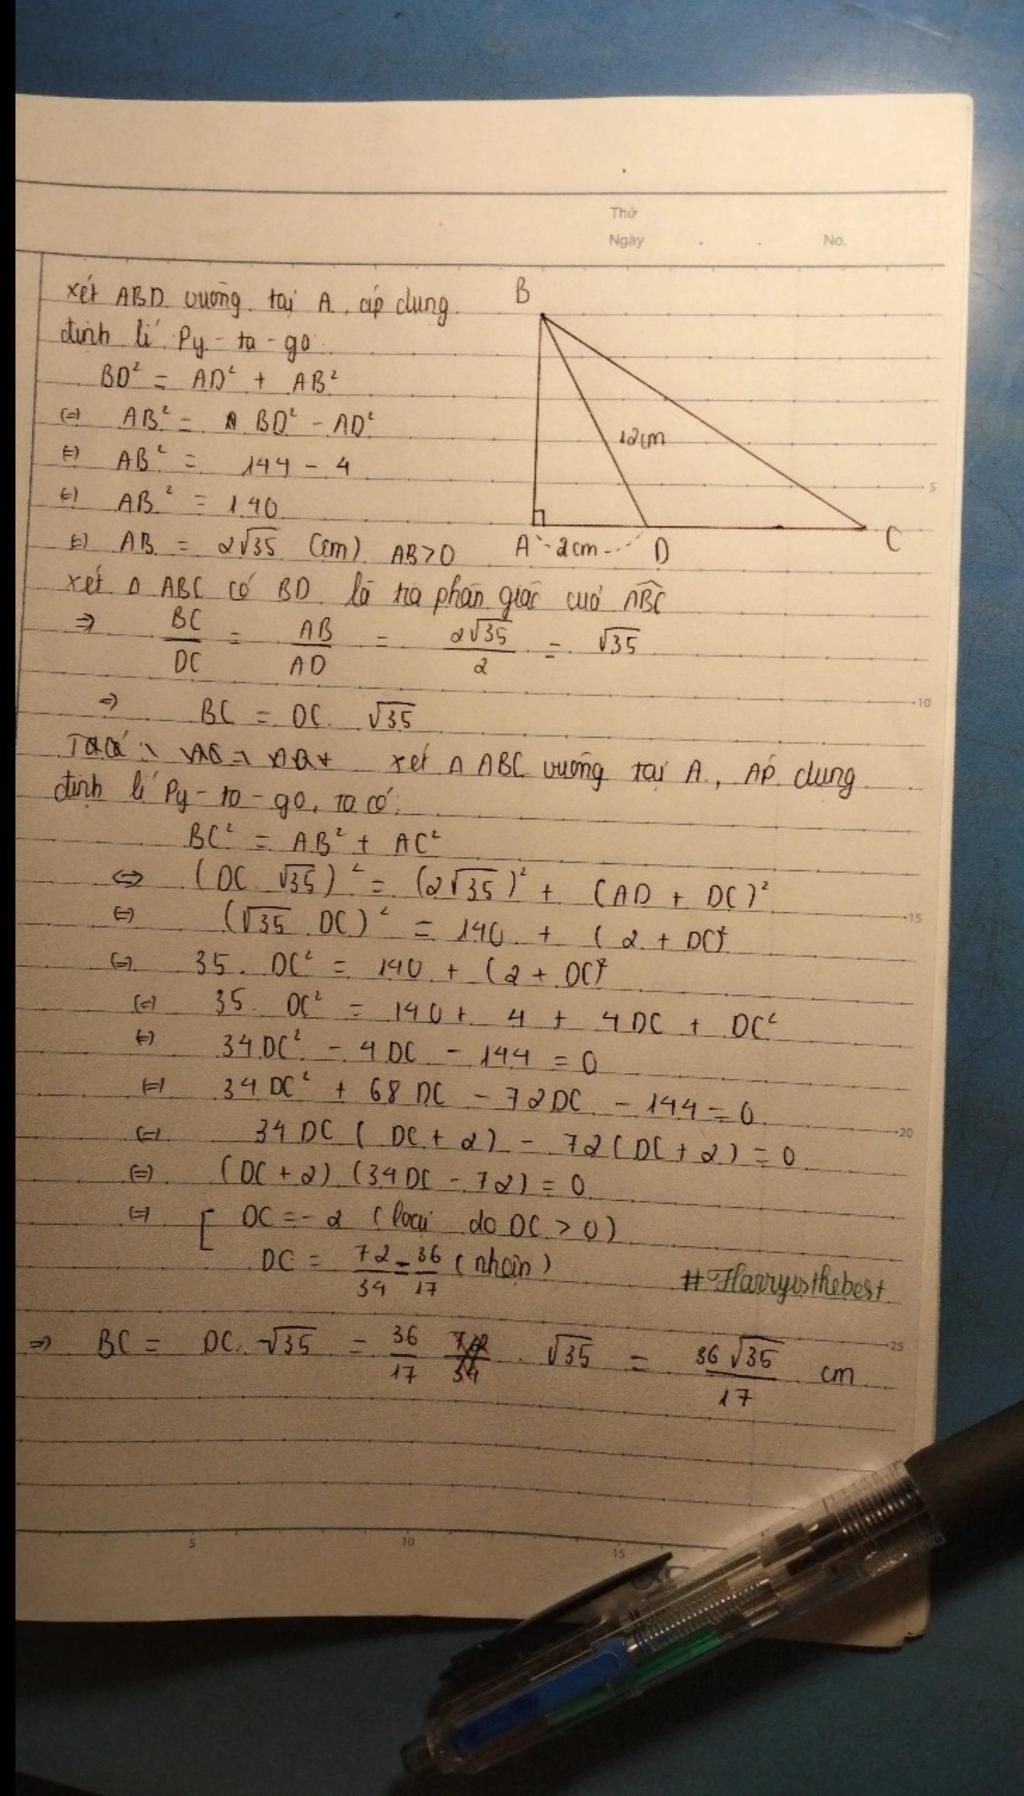 Thứ
Ngày
No.
xét ABD vuông tại A, áp dụng
định lí Py-ta-go
BD² = AD² + AB²
(=) AB² = BD² - AD²
(=) AB² = 144 - 4
(=) AB² = 140
(=) AB = 2√35 (cm) AB>0
B
12cm
A 2cm D
C
xét Δ ABC có BD là tia phân giác của ABC
=> BC/DC = AB/AD = 2√35/2 = √35
=> BC = DC. √35
xét Δ ABC vuông tại A, Áp dụng
định lí Py-ta-go, ta có:
BC² = AB² + AC²
<=> (DC √35)² = (2√35)² + (AD + DC)²
(=) (√35 DC)² = 140 + (2 + DC)²
(=) 35. DC² = 140 + (2 + DC)²
(=) 35. DC² = 140 + 4 + 4DC + DC²
(=) 34DC² - 4DC - 144 = 0
(=) 34DC² + 68DC - 72DC - 144 = 0
(=) 34DC (DC + 2) - 72(DC + 2) = 0
(=) (DC + 2) (34DC - 72) = 0
(=) [ DC = -2 (loại do DC > 0)
DC = 72/34 = 36/17 (nhận)
#Harryisthebest
=> BC = DC. √35 = 36/17 . √35 = 36√35/17 cm
5
10
15
20
25
5
10
15